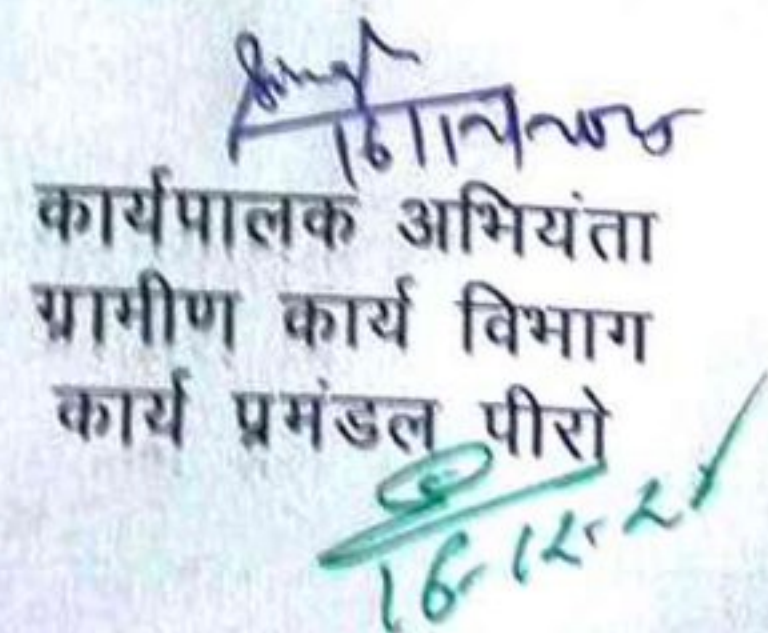 Singh
कार्यपालक अभियंता
ग्रामीण कार्य विभाग
कार्य प्रमंडल पीरो
16.12.2